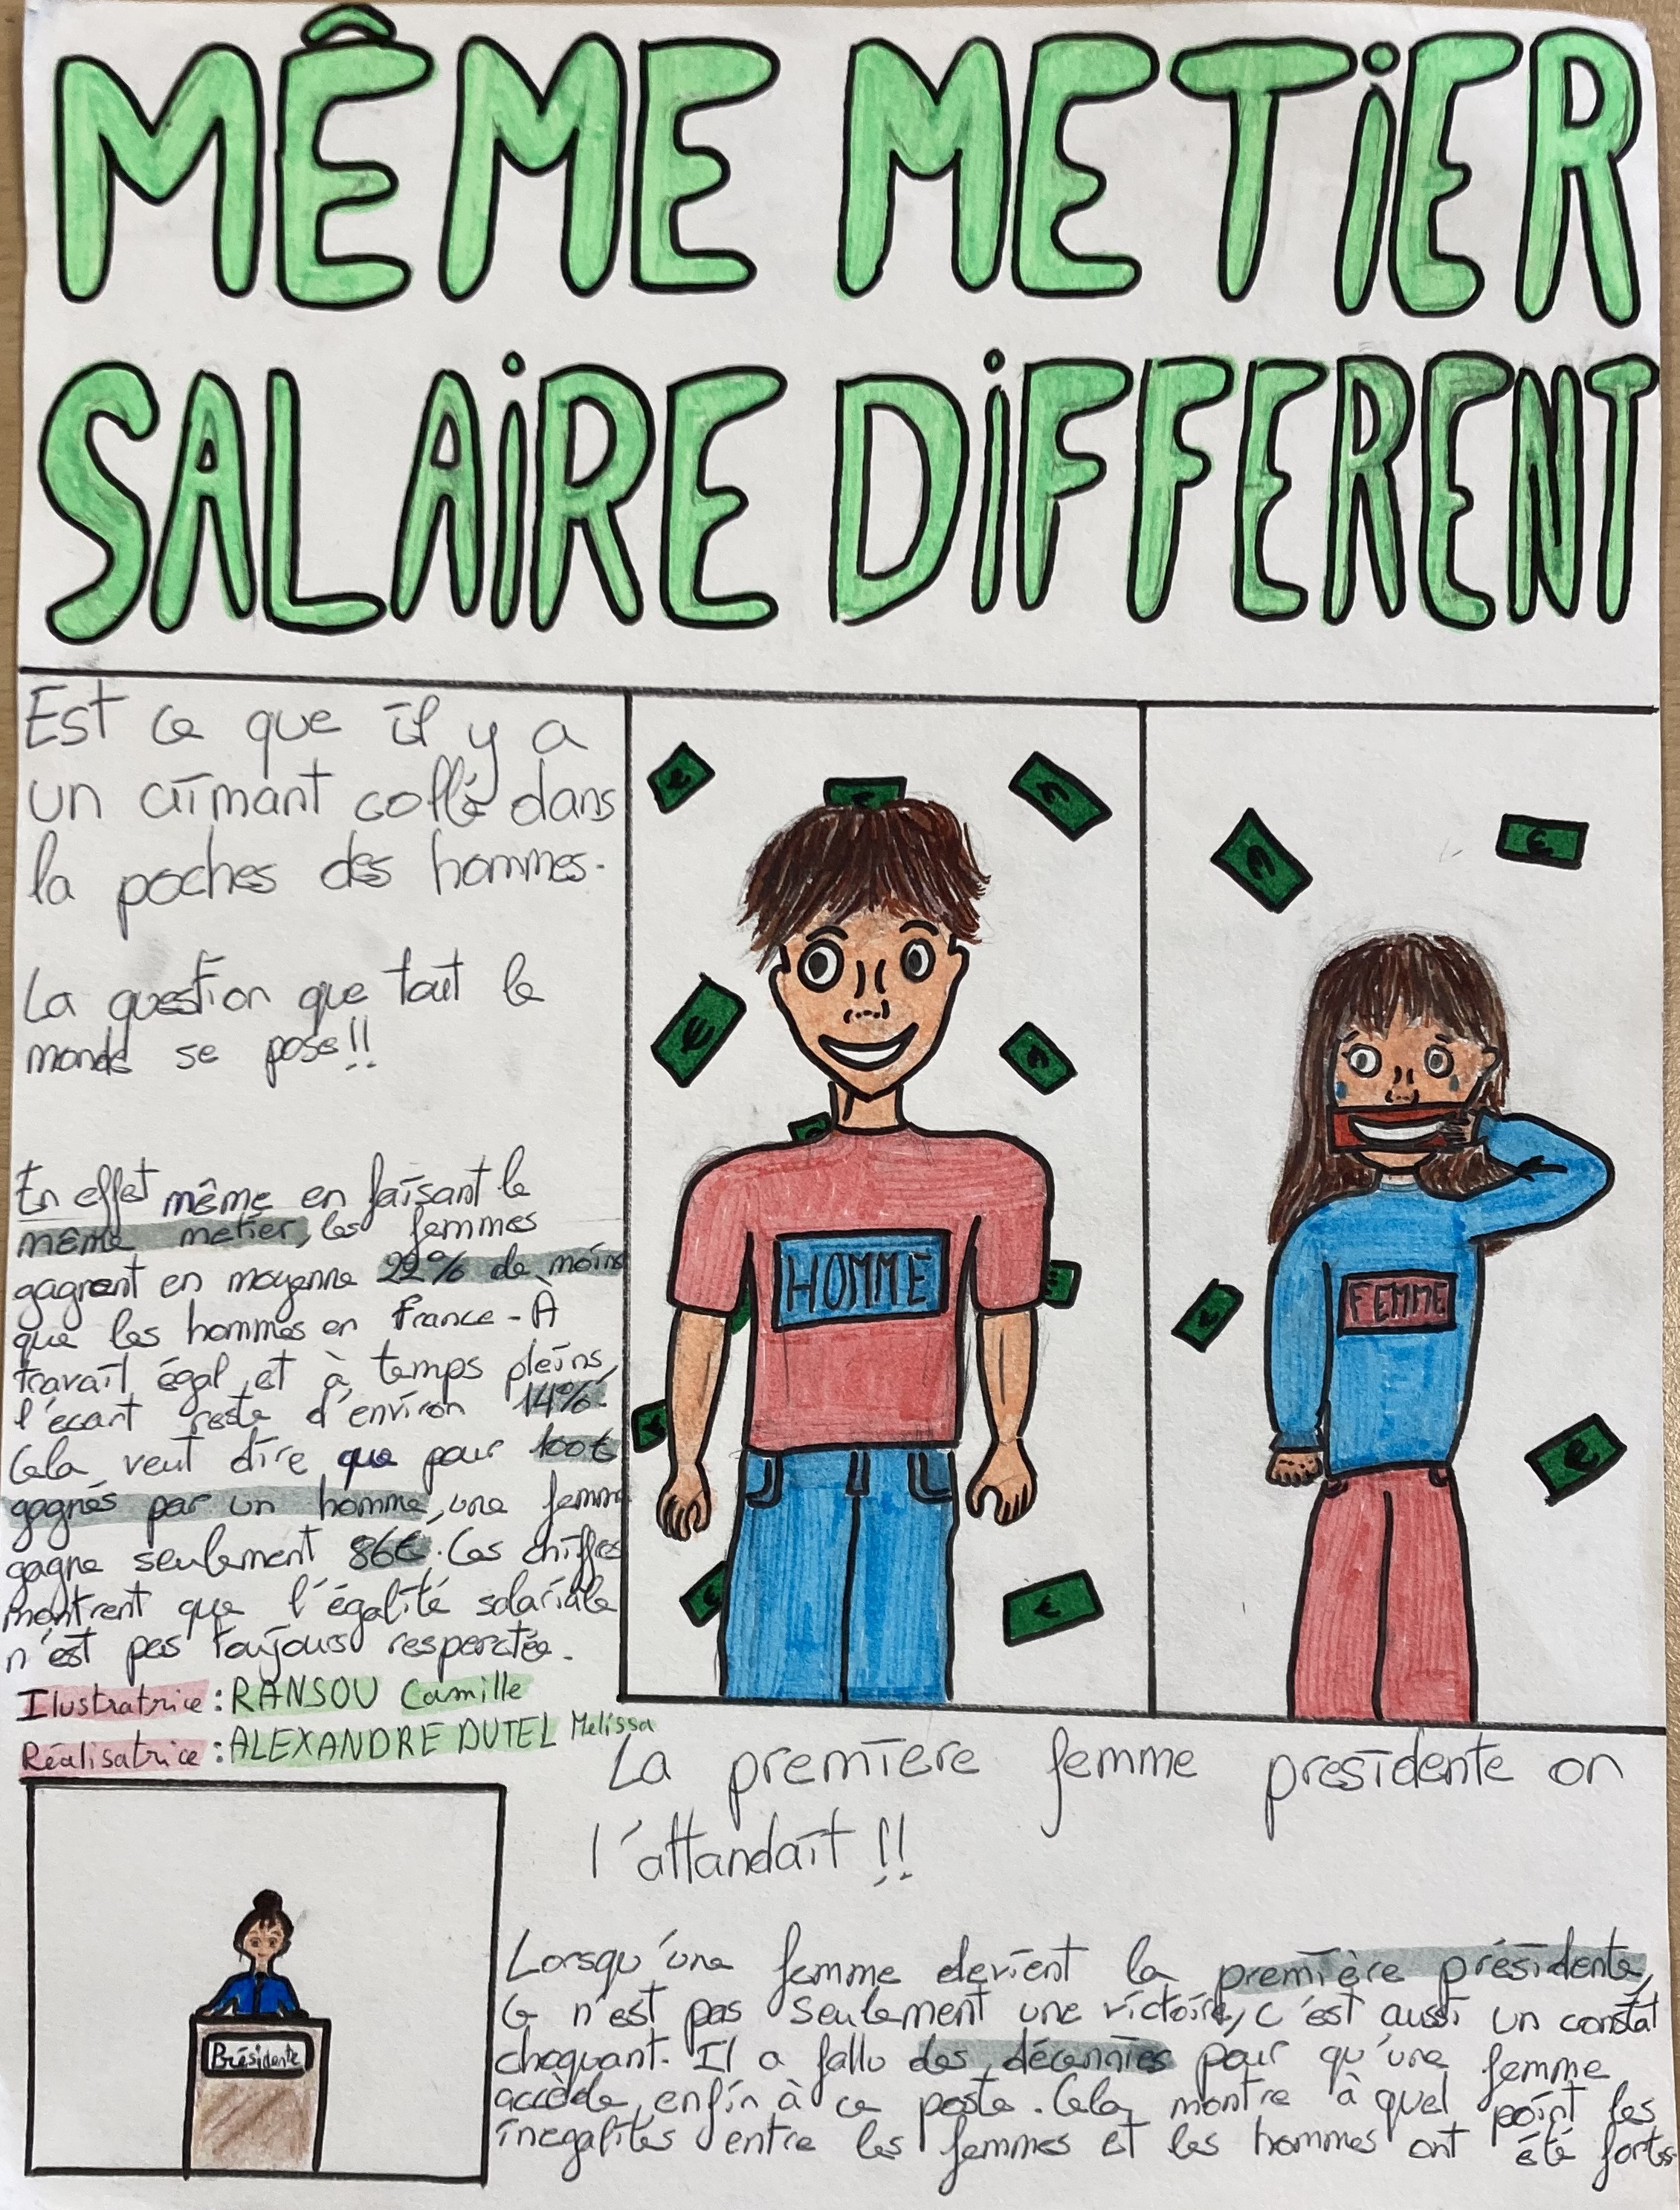 MÊME METiER
SALAiRE DiFFERENT
Est ce que il y a
un aimant collé dans
la poches des hommes.
La question que tout le
monde se pose!!
En effet même en faisant le
même metier, les femmes
gagnent en moyenne 22% de moins
que les hommes en France - À
travail égal et à temps pleins,
l'écart reste d'environ 14%.
Cela veut dire que pour 100€
gagnés par un homme, une femme
gagne seulement 86€. Ces chiffres
montrent que l'égalité salariale
n'est pas toujours respectée.
Ilustratrice : RANSOU Camille
Réalisatrice : ALEXANDRE DUTEL Melissa
HOMME
FEMME
La premiere femme presidente on
l'attandait !!
Présidente
Lorsqu'une femme devient la première présidente,
Ce n'est pas seulement une victoire, c'est aussi un constat
choquant. Il a fallu des décennies pour qu'une femme
accède enfin à ce poste. Cela montre à quel point les
inegalités entre les femmes et les hommes ont été fortes.